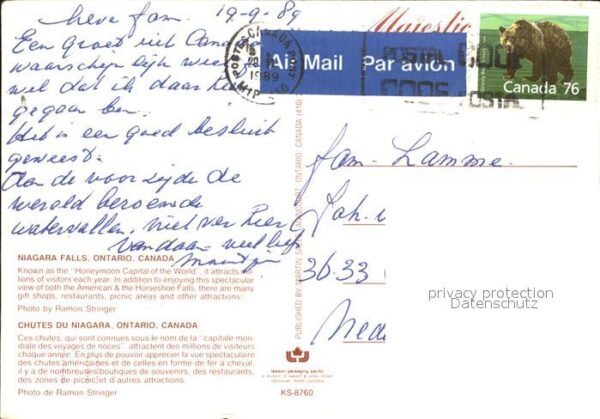 lieve fam. 19-9-89
Een groet uit Cana
waarschijnlijk wee
wel dat ik daar he
gegaan ben.
Het is een goed besluit
geweest.
Aan de voorzijde de
wereld beroemde
watervallen, niet ver hier
vandaan - veel liefs
Majestic
POSTES CANADA POST
1989
Air Mail Par avion
POSTAL CODE
CODE POSTAL
Canada 76
fam. Lamme.
Joh.
3633
Nede
privacy protection
Datenschutz
NIAGARA FALLS, ONTARIO, CANADA
Known as the "Honeymoon Capital of the World", it attracts
lions of visitors each year. In addition to enjoying this spectacular
view of both the American & the Horseshoe Falls, there are many
gift shops, restaurants, picnic areas and other attractions.
Photo by Ramon Stringer
CHUTES DU NIAGARA, ONTARIO, CANADA
Ces chutes, qui sont connues sous le nom de la "capitale mon-
diale des voyages de noces", attractent des millions de visiteurs
chaque année. En plus de pouvoir apprécier la vue spectaculaire
des chutes américaines et de celles en forme de fer à cheval,
il y a de nombreuses boutiques de souvenirs, des restaurants,
des zones de picnic et d'autres attractions.
Photo de Ramon Stringer
PUBLISHED BY ONTARIO, CANADA (416)
lawson packaging pacific
KS-8760